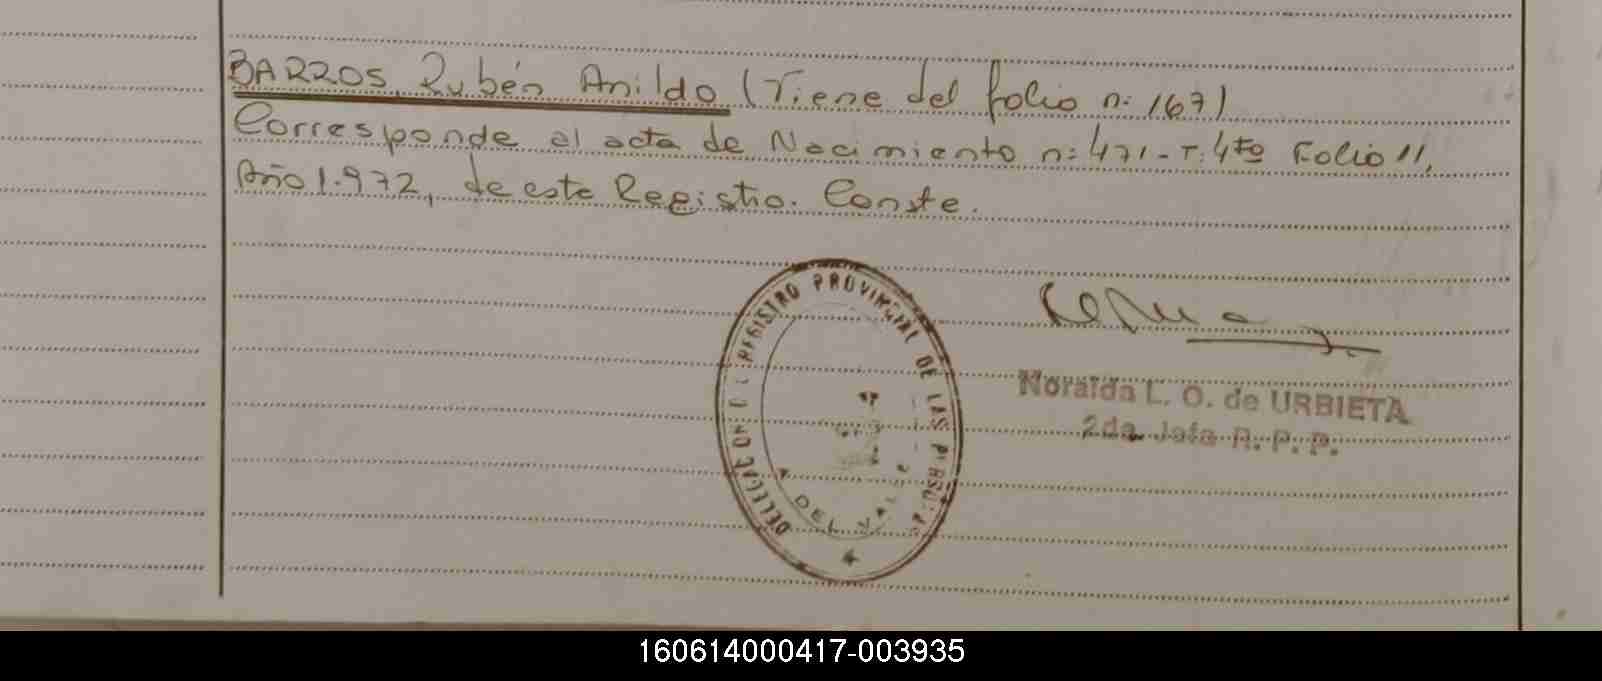 BARROS, Rubén Anildo (Viene del folio n: 167)
Corresponde al acta de Nacimiento n: 471 - T: 4to Folio 11,
Año 1.972, de este Registro. Conste.
DELEGACION DEL REGISTRO PROVINCIAL DE LAS PERSONAS
DEL VALLE
Noralda L. O. de URBIETA
2da. Jefa R. P. P.
160614000417-003935